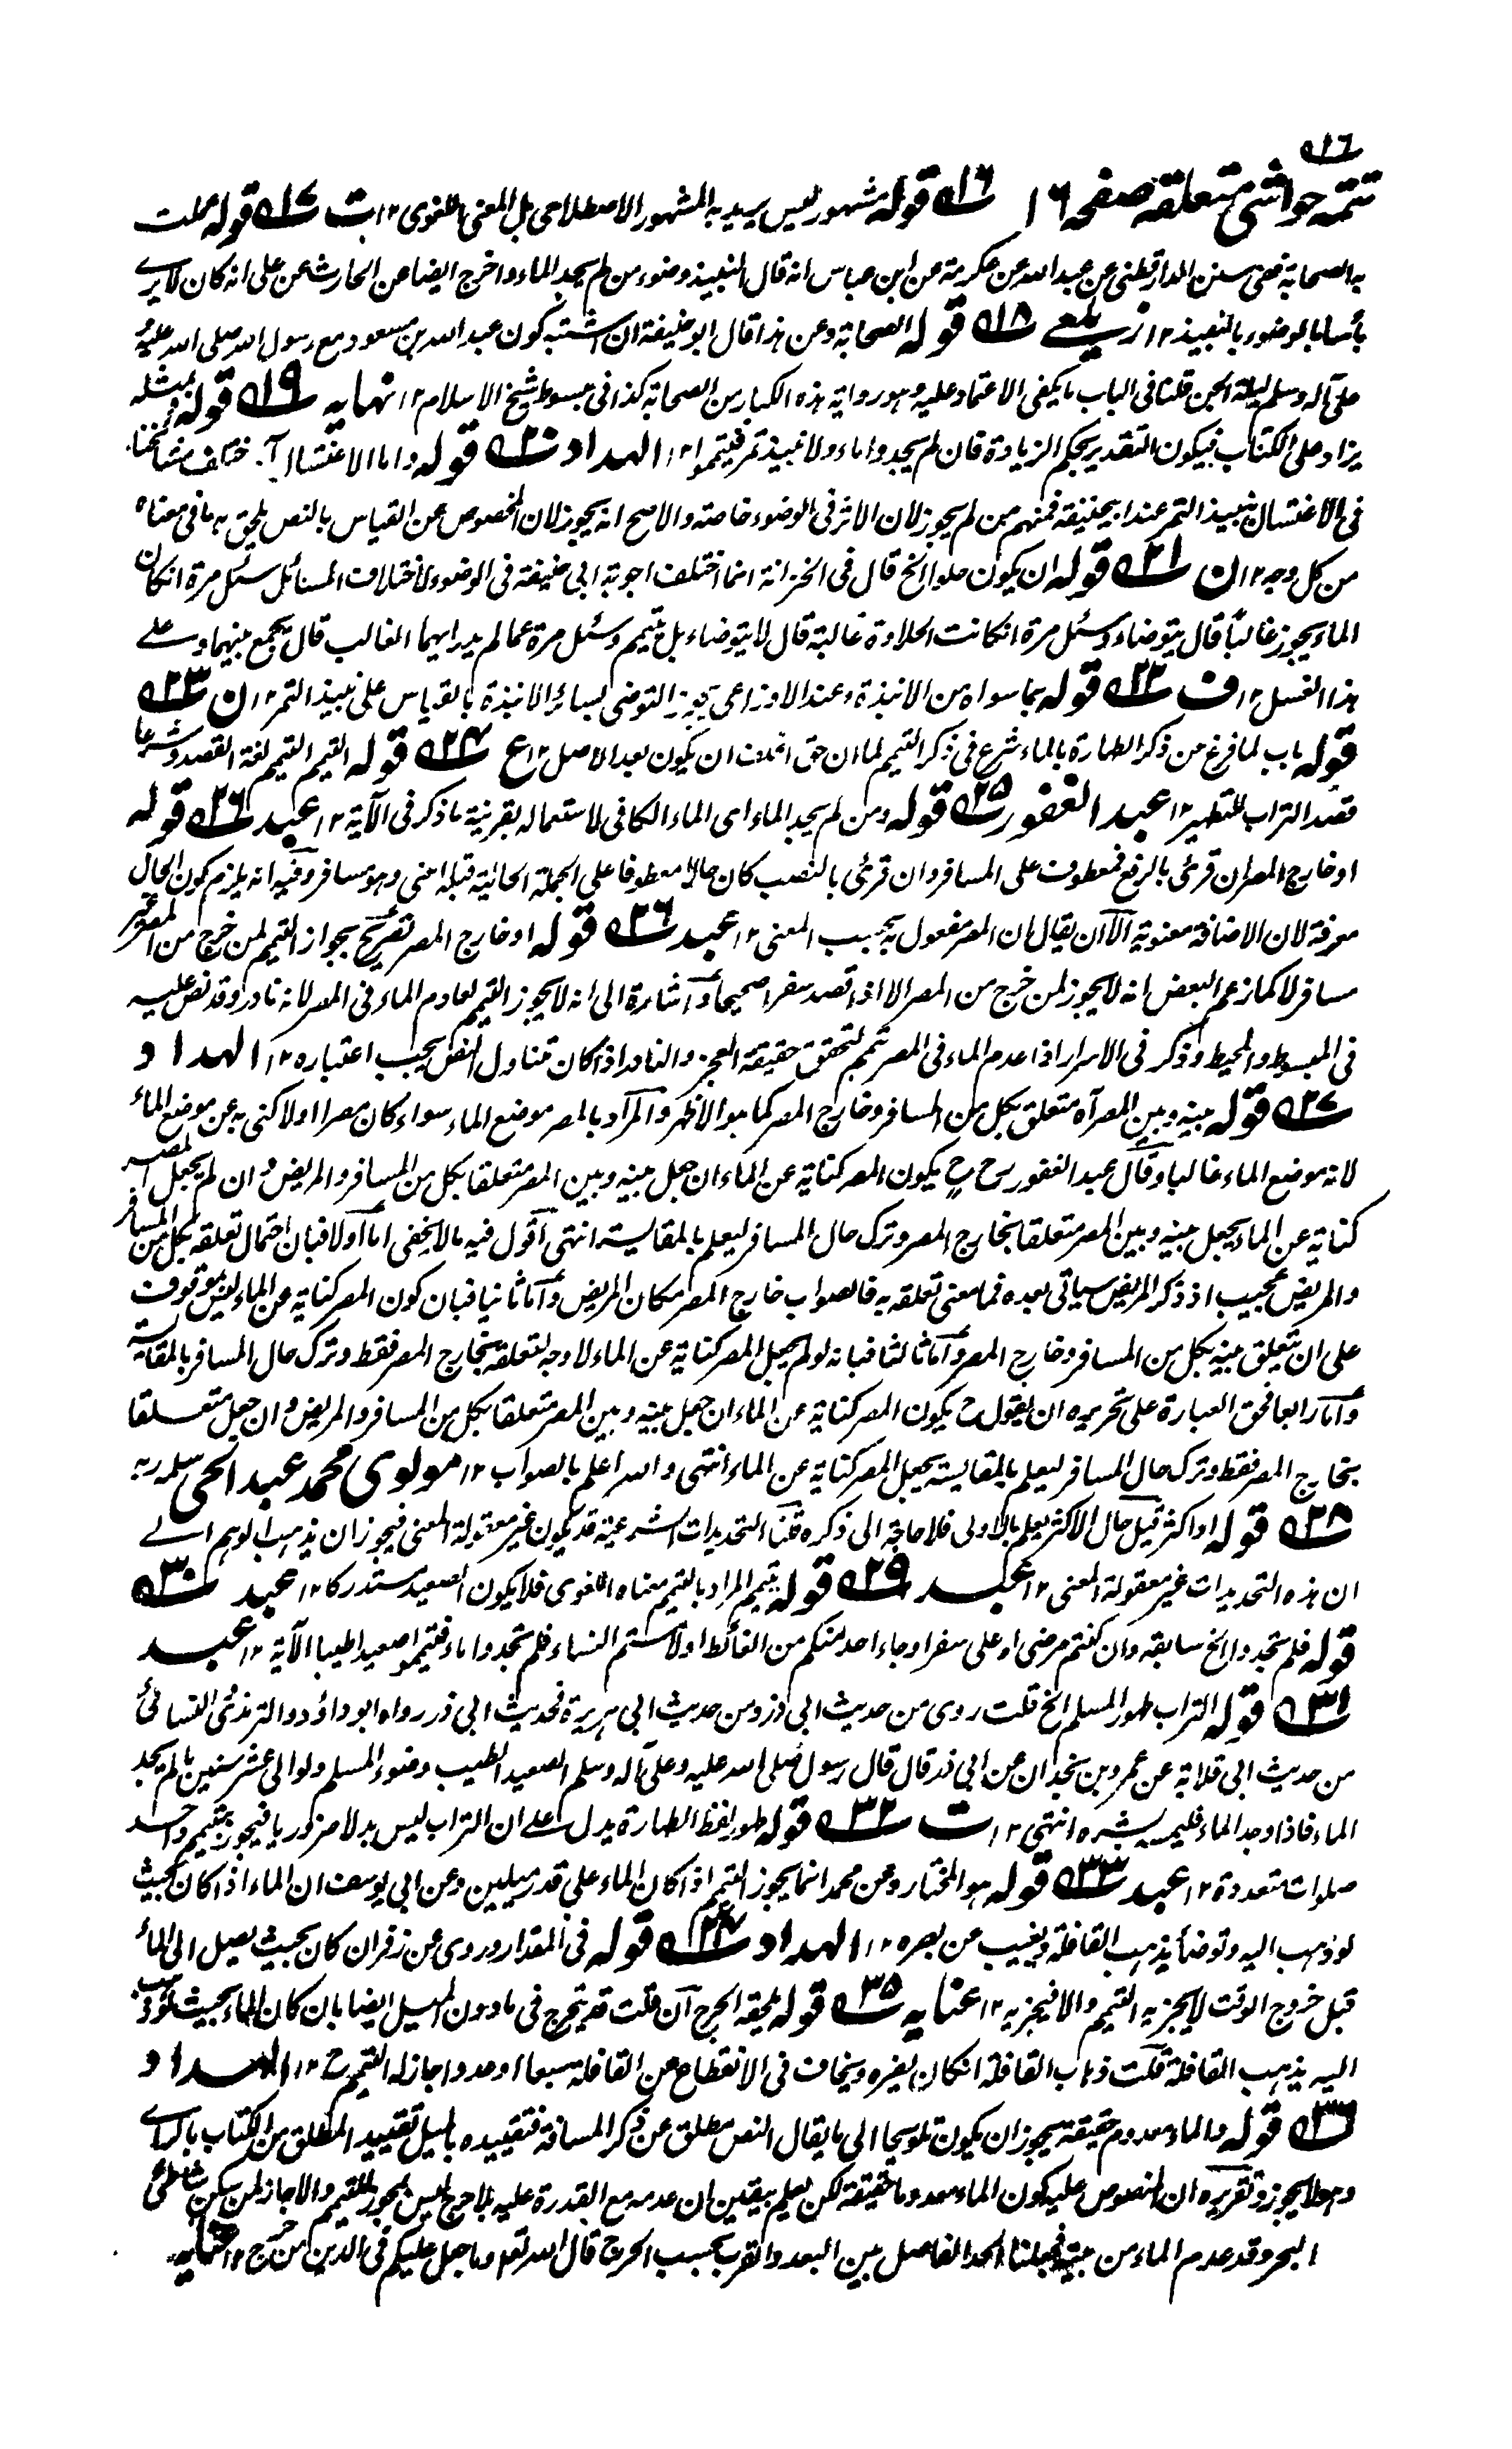 ١٦
تتمہ حواشی متعلقہ صفحہ ١٦ ١٦ قوله مشهور ليس يريد به المشهور الاصطلاحي بل المعنى اللغوى ١٢ ت ١٧ قوله عملت
به الصحابة ففى سنن الدارقطنى عن عبد الله عن عكرمة عن ابن عباس انه قال النبيذ وضوء من لم يجد الماء واخرج ايضا عن الحارث عن على انه كان لا يرى
بأسا بالوضوء بالنبيذ ١٢ زيلعى ١٨ قوله الصحابة وعن هذا قال ابو حنيفة ان اشتبه كون عبد الله بن مسعود مع رسول الله صلى الله عليه
وعلى آله وسلم ليلة الجن قلنا فى الباب ما يكفى الاعتماد عليه وهو رواية هذه الكبار من الصحابة كذا فى مبسوط شيخ الاسلام ١٢ نهايه ١٩ قوله وبمثله
يزاد على الكتاب فيكون التقدير بحكم الزيادة فان لم يجدوا ماء ولا نبيذ تمر فتيمموا ١٢ الهداد ٢٠ قوله واما الاغتسال آه اختلف مشائخنا
فى الاغتسال بنبيذ التمر عند ابيحنيفة فمنهم من لم يجوز لان الاثر فى الوضوء خاصة والاصح انه يجوز لان المخصوص عن القياس بالنص يلحق به ما فى معناه
من كل وجه ١٢ ن ٢١ قوله ان يكون حلوا الخ قال فى الخزانة انما اختلف اجوبة ابى حنيفة فى الوضوء لاختلاف المسائل سئل مرة انكان
الماء يجوز غالبا قال يتوضاء وسئل مرة انكانت الحلاوة غالبة قال لا يتوضاء بل يتيمم وسئل مرة عما لم يدر ايهما الغالب قال يجمع بينهما وعلى
هذا الغسل ١٢ ف ٢٢ قوله بما سواه من الانبذة وعند الاوزاعى يجوز التوضى بسائر الانبذة بالقياس على نبيذ التمر ١٢ ن ٢٣
قوله باب لما فرغ من ذكر الطهارة بالماء شرع فى ذكر التيمم لما ان حق الخلف ان يكون بعد الاصل ١٢ ع ٢٤ قوله التيمم التيمم لغة القصد وشرعا
قصد التراب للتطهير ١٢ عبد الغفور ٢٥ قوله ومن لم يجد الماء اى الماء الكافى لاستعماله بقرينة ما ذكر فى الآية ١٢ عبد ٢٦ قوله
او خارج المصر ان قرئ بالرفع فمعطوف على المسافر وان قرئ بالنصب كان حالا معطوفا على الجملة الحالية قبله اعنى وهو مسافر وفيه انه يلزم كون الحال
معرفة لان الاضافة معنوية الا ان يقال ان المصر مفعول به بحسب المعنى ١٢ عبد ٢٦ قوله او خارج المصر تصريح بجواز التيمم لمن خرج من المصر غير
مسافر لا كما زعم البعض انه لا يجوز لمن خرج من المصر الا اذا قصد سفرا صحيحا واشارة الى انه لا يجوز التيمم لعادم الماء فى المصر لانه نادر وقد نص عليه
فى المبسوط والمحيط وذكر فى الاسرار اذا عدم الماء فى المصر تيمم لتحقق حقيقة العجز والنادر اذا كان تناول النص يجب اعتباره ١٢ الهداد
٢٧ قوله بينه وبين المصر آه متعلق بكل من المسافر وخارج المصر كما هو الاظهر والمراد بالمصر موضع الماء سواء كان مصرا او لا كنى به عن موضع الماء
لانه موضع الماء غالبا وقال عبد الغفور رح ح يكون المصر كناية عن الماء ان جعل بينه وبين المصر متعلقا بكل من المسافر والمريض وان لم يجعل المصر
كناية عن الماء يجعل بينه وبين المصر متعلقا بخارج المصر وترك حال المسافر ليعلم بالمقايسة انتهى اقول فيه ما لا يخفى اما اولا فبان احتمال تعلقه بكل من المسافر
والمريض عجيب اذ ذكر المريض سياتى بعده فما معنى تعلقه به فالصواب خارج المصر مكان المريض واما ثانيا فبان كون المصر كناية عن الماء ليس بموقوف
على ان يتعلق بينه بكل من المسافر وخارج المصر واما ثالثا فبانه لو لم يجعل المصر كناية عن الماء لا وجه لتعلقه بخارج المصر فقط وترك حال المسافر بالمقايسة
واما رابعا فحق العبارة على تحريره ان يقول ح يكون المصر كناية عن الماء ان جعل بينه وبين المصر متعلقا بكل من المسافر والمريض وان جعل متعلقا
بخارج المصر فقط وترك حال المسافر ليعلم بالمقايسة يجعل المصر كناية عن الماء انتهى والله اعلم بالصواب ١٢ مولوى محمد عبد الحى سلمه ربه
٢٨ قوله او اكثر قيل حال الاكثر يعلم بالاولى فلا حاجة الى ذكره قلنا التحديدات الشرعية قد يكون غير معقولة المعنى فيجوز ان يذهب الوهم الى
ان هذه التحديدات غير معقولة المعنى ١٢ عبد ٢٩ قوله يتيمم المراد بالتيمم معناه اللغوى فلا يكون الصعيد مستدركا ١٢ عبد ٣٠
قوله فلم تجدوا الخ سابقه وان كنتم مرضى او على سفر او جاء احد منكم من الغائط او لامستم النساء فلم تجدوا ماء فتيمموا صعيدا طيبا الآية ١٢ عبد
٣١ قوله التراب طهور المسلم الخ قلت روى من حديث ابى ذر ومن حديث ابى هريرة فحديث ابى ذر رواه ابو داؤد والترمذى والنسائى
من حديث ابى قلابة عن عمرو بن بجدان عن ابى ذر قال قال رسول صلى الله عليه وعلى آله وسلم الصعيد الطيب وضوء المسلم ولو الى عشر سنين ما لم يجد
الماء فاذا وجد الماء فليمسه بشره انتهى ١٢ ت ٣٢ قوله طهور لفظ الطهارة يدل على ان التراب ليس بدلا ضروريا فيجوز بتيمم واحد
صلوات متعددة ١٢ عبد ٣٣ قوله هو المختار وعن محمد انما يجوز التيمم اذا كان الماء على قدر ميلين وعن ابى يوسف ان الماء اذا كان بحيث
لو ذهب اليه وتوضأ يذهب القافلة ويغيب عن بصره ١٢ الهداد ٣٤ قوله فى المقدار وروى عن زفر ان كان بحيث يصل الى الماء
قبل خروج الوقت لا يجزيه التيمم والا فيجزيه ١٢ عنايه ٣٥ قوله يلحقه الحرج آن قلت قد يخرج فى ما دون الميل ايضا بان كان الماء بحيث لو ذهب
اليه يذهب القافلة قلت ذهاب القافلة انكان يضره ويخاف فى الانقطاع عن القافلة سبعا او عدوا جاز له التيمم ح ١٢ الهداد
٣٦ قوله والماء معدوم حقيقة يجوز ان يكون تلويحا الى ما يقال النص مطلق عن ذكر المسافة فتقييده بالميل تقييد المطلق من الكتاب بالراى
وهو لا يجوز وتقريره ان المنصوص عليه كون الماء معدوما حقيقة لكن نعلم بيقين ان عدمه مع القدرة عليه بلا حرج ليس بمجوز للتيمم والا جاز لمن سكن شاطئ
البحر وقد عدم الماء من بيته فجعلنا الحد الفاصل بين البعد والقرب بحسب الحرج قال الله تعالى وما جعل عليكم فى الدين من حرج ١٢ عنايه